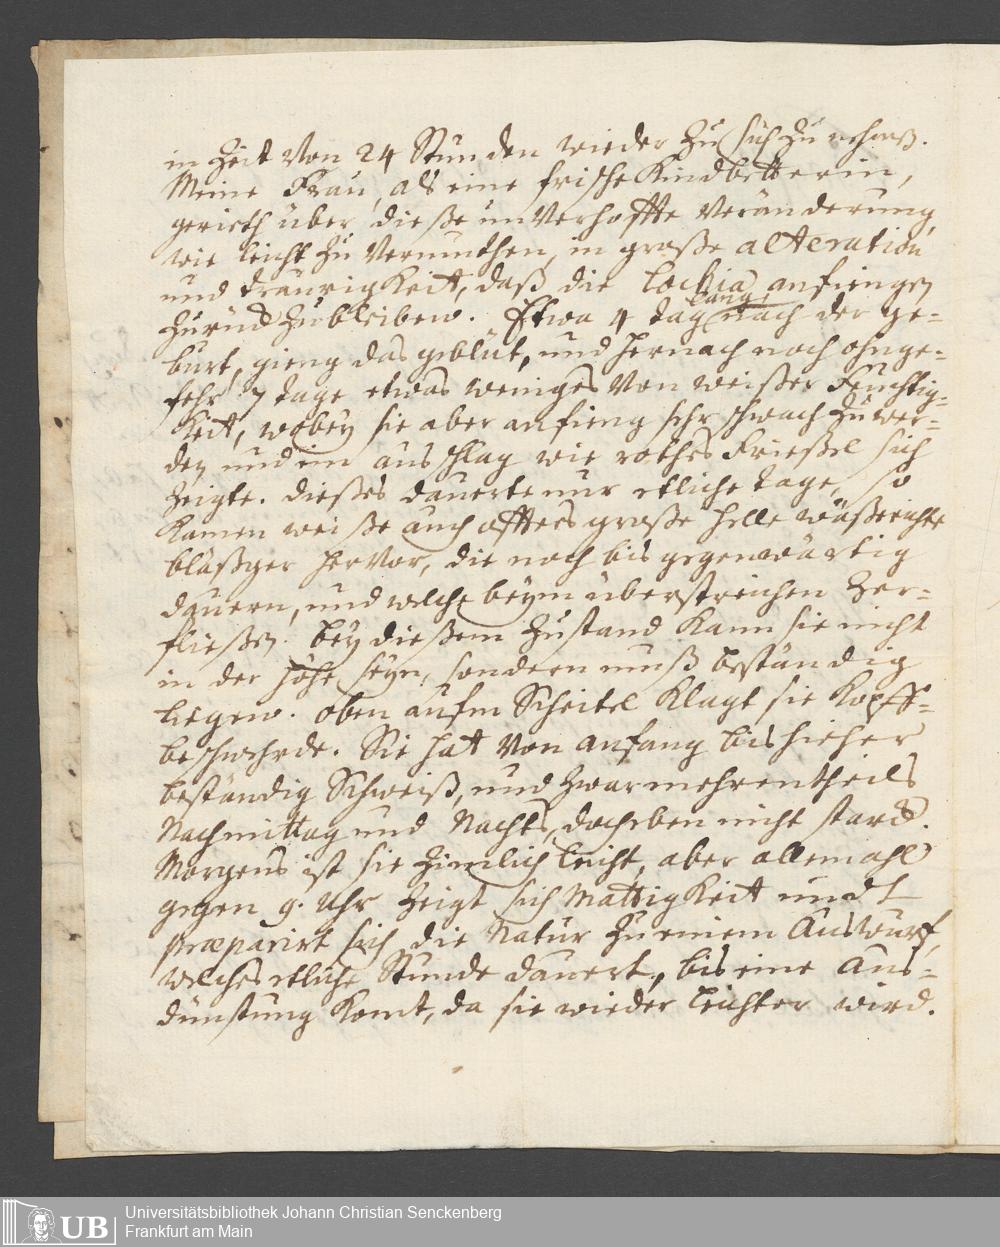 in Zeit von 24 Stunden wieder zu sich zu
Meine Frau, als eine frische Kindbetterin,
gerieth über dieße unverhoffte Veränderung,
wie leicht zu vermuthen, in große alteration
und Traurigkeit, daß die Lochia anfiengen
zurück zubleiben. Etwa 4 tag lang nach der ge-
burt, gieng das geblüt, und hernach noch ohnge-
fehr 7 tage etwas weniges von weißer Feuchtig-
keit, wobey sie aber anfieng sehr schwach zu wer-
den und ein ausschlag wie rothes Frießel sich
zeigte. dießes dauerte nur etliche tage, so
kamen weiße auch öffters große helle wäßerichte
bläßger hervor, die noch bis gegenwärtig
dauern, und welche beym überstreichen zer-
fließen. bey dießem Zustand kann sie nicht
in der höhe seyn, sondern muß beständig
liegen. oben aufm Scheitel klagt sie Kopff-
beschwehrde. Sie hat von anfang bis hieher
beständig Schweiß, und zwar mehrentheils
Nachmittag und Nachts, doch eben nicht starck.
Morgens ist sie zimlich leicht, aber allemahl
gegen 9. Uhr zeigt sich Mattigkeit und
præparirt sich die Natur zu einem Auswurf,
welches etliche Stunde dauert, bis eine Aus-
dünstung komt, da sie wieder leichter wird.
UB
Universitätsbibliothek Johann Christian Senckenberg
Frankfurt am Main